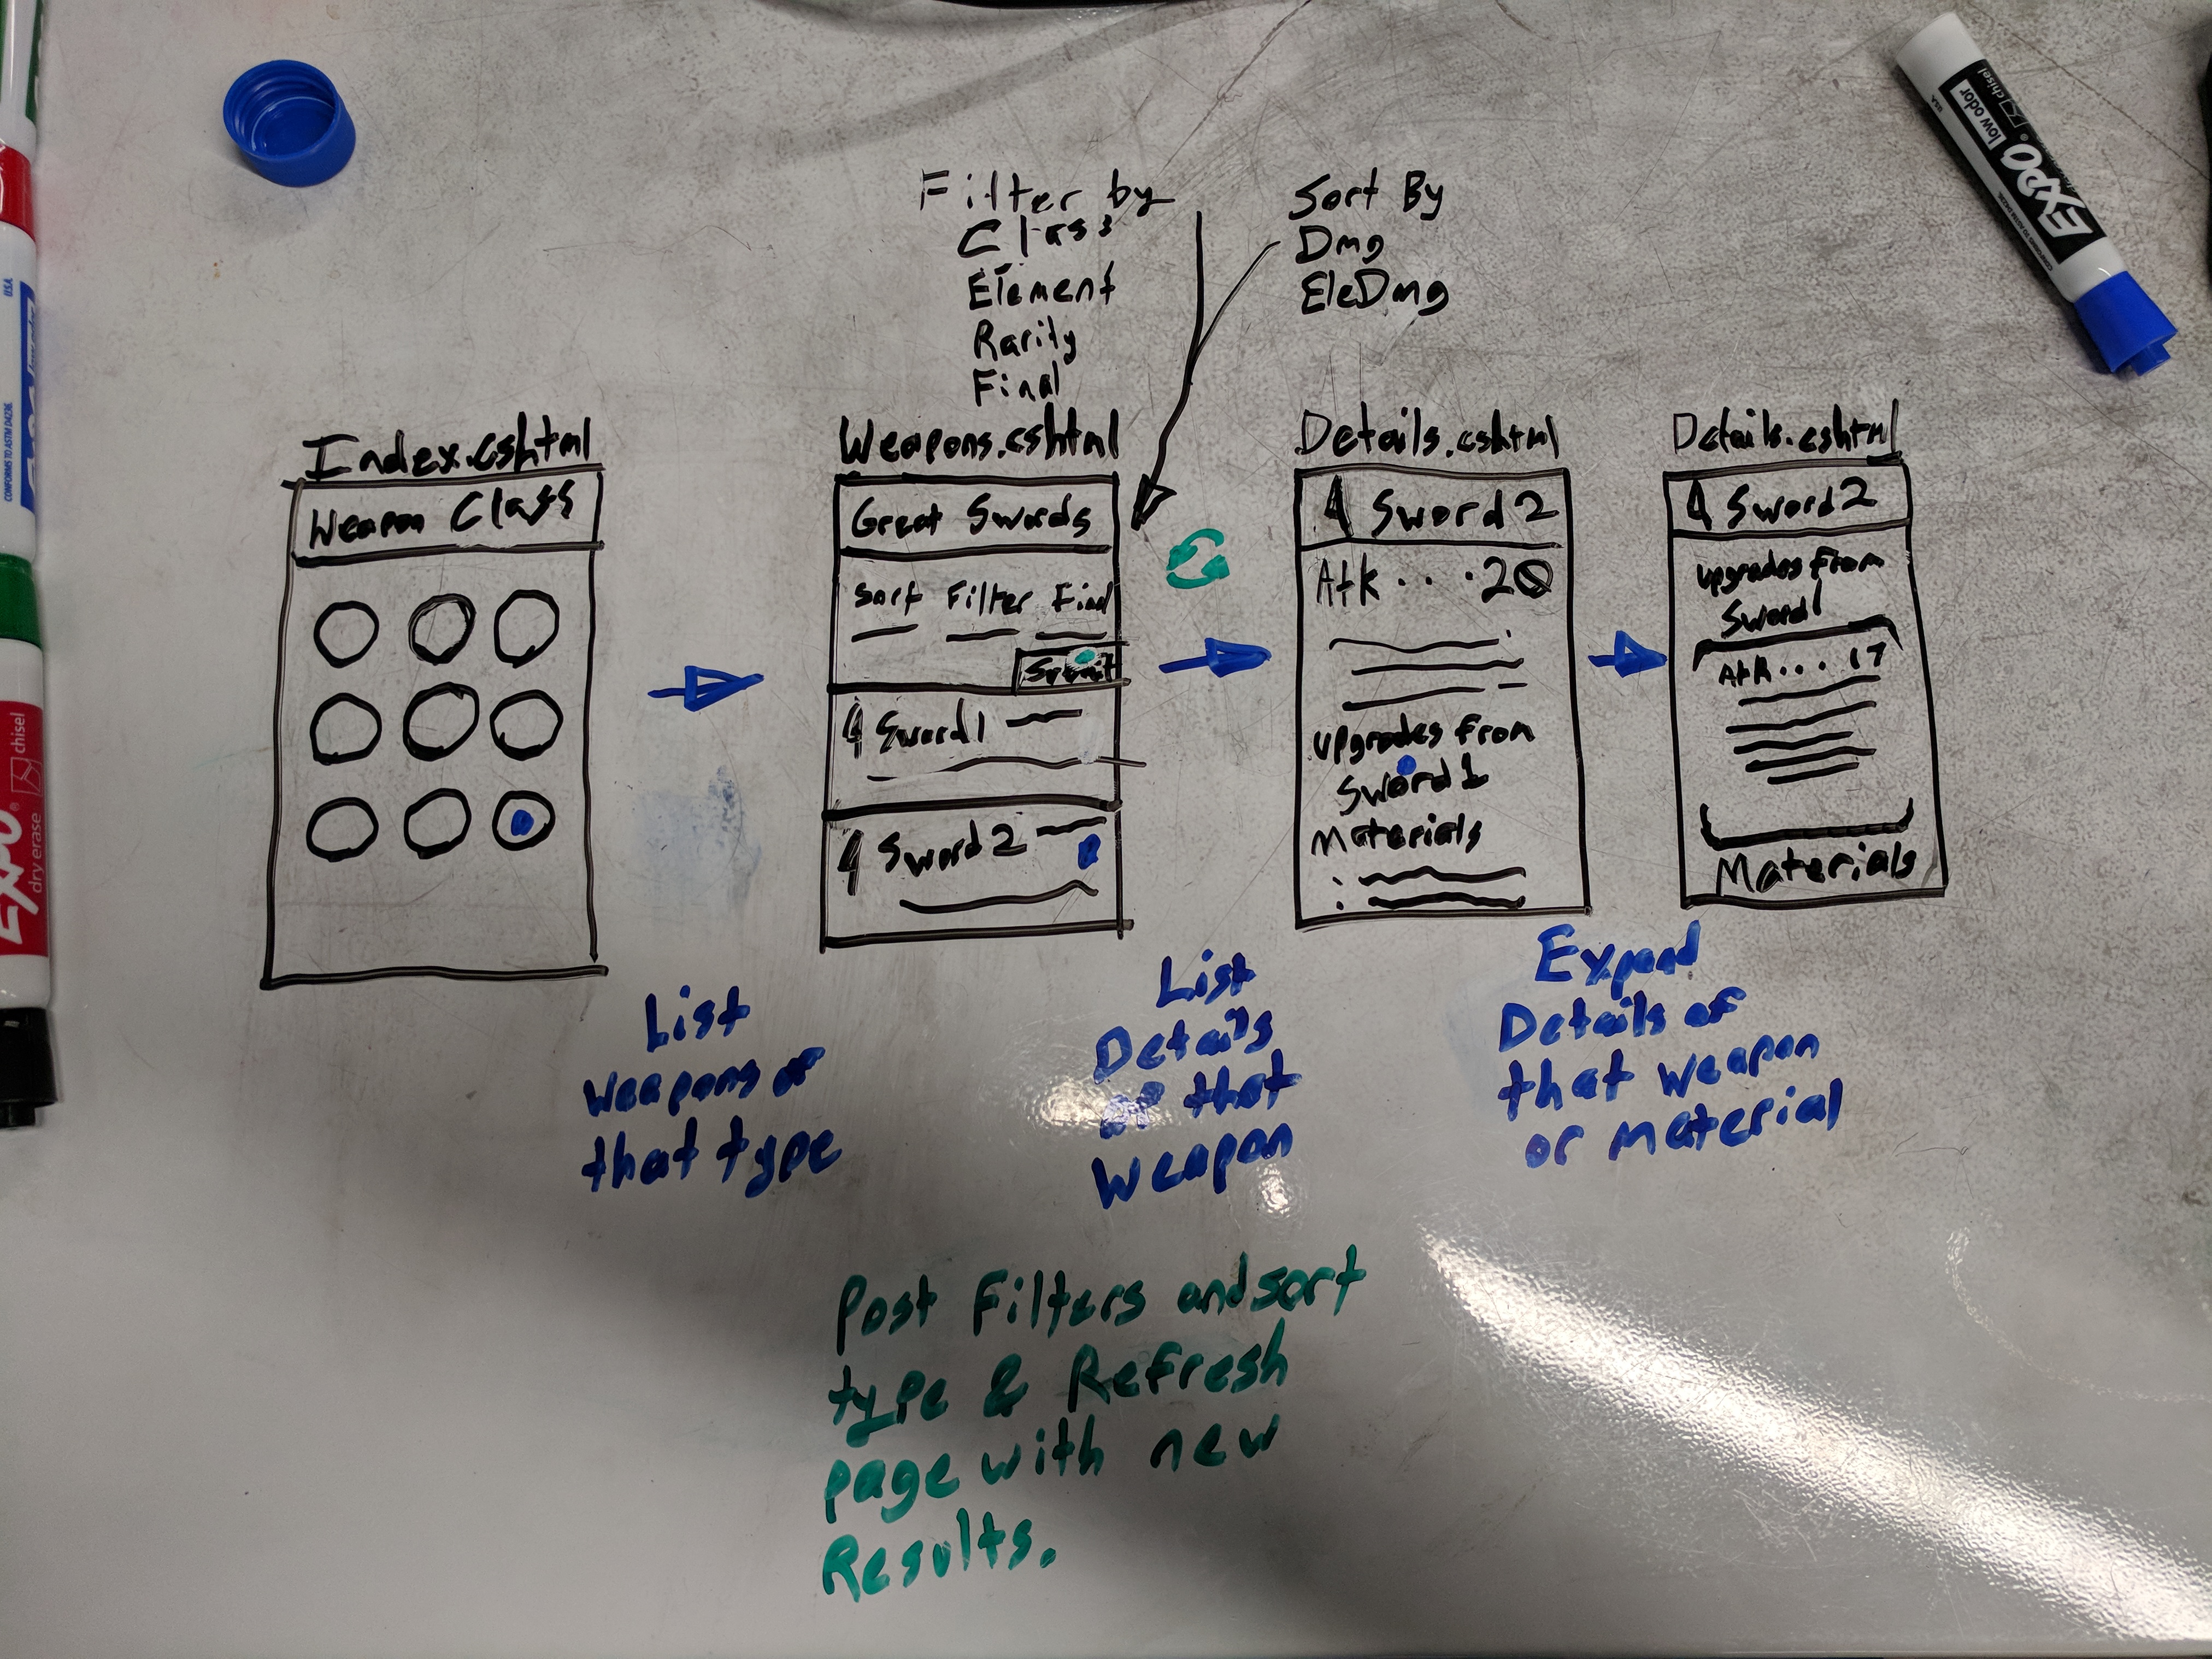 Filter by
Class
Element
Rarity
Final
Sort By
Dmg
EleDmg
Index.cshtml
Weapon Class
Weapons.cshtml
Great Swords
Sort Filter Final
Submit
Sword1
Sword 2
Details.cshtml
Sword 2
Atk . . . 20
upgrades from
Sword 1
Materials
Details.cshtml
Sword 2
upgrades from
Sword1
Atk . . . 17
Materials
List
weapons of
that type
List
Details
of that
weapon
Expand
Details of
that weapon
or material
Post Filters and sort
type & Refresh
page with new
Results.
EXPO
low odor
chisel
USA
EXPO
dry erase
chisel
U.S.A.
CONFORMS TO ASTM D4236